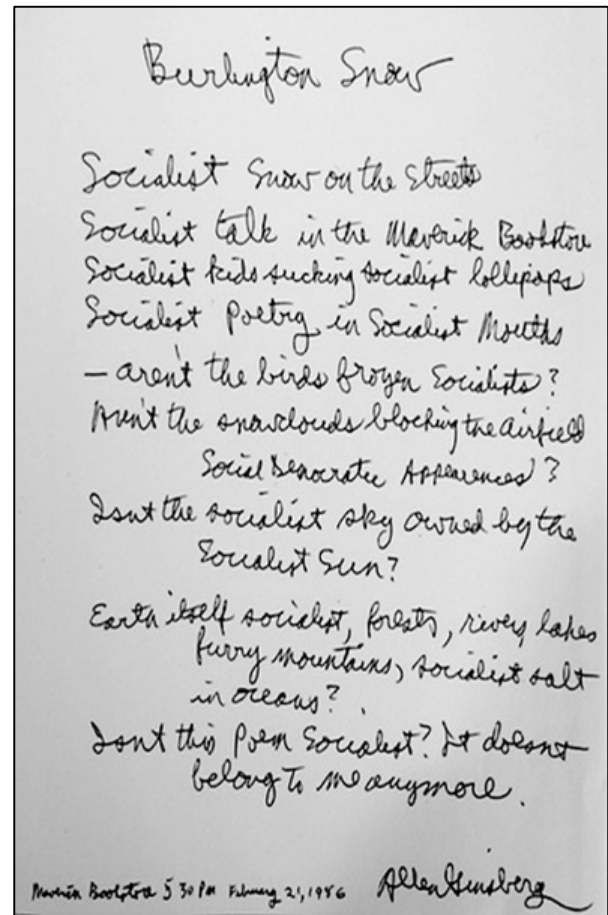 Burlington Snow
Socialist Snow on the Streets
Socialist talk in the Maverick Bookstore
Socialist kids sucking socialist lollipops
Socialist Poetry in Socialist Mouths
— aren't the birds frozen Socialists?
Aren't the snowclouds blocking the Airfield
Social Democratic Appearances?
Isnt the socialist sky owned by the
Socialist Sun?
Earth itself socialist, forests, rivers, lakes
furry mountains, socialist salt
in oceans?
Isnt this Poem Socialist? It doesnt
belong to me anymore.
Allen Ginsberg
Maverick Bookstore 5 30 PM February 21, 1986